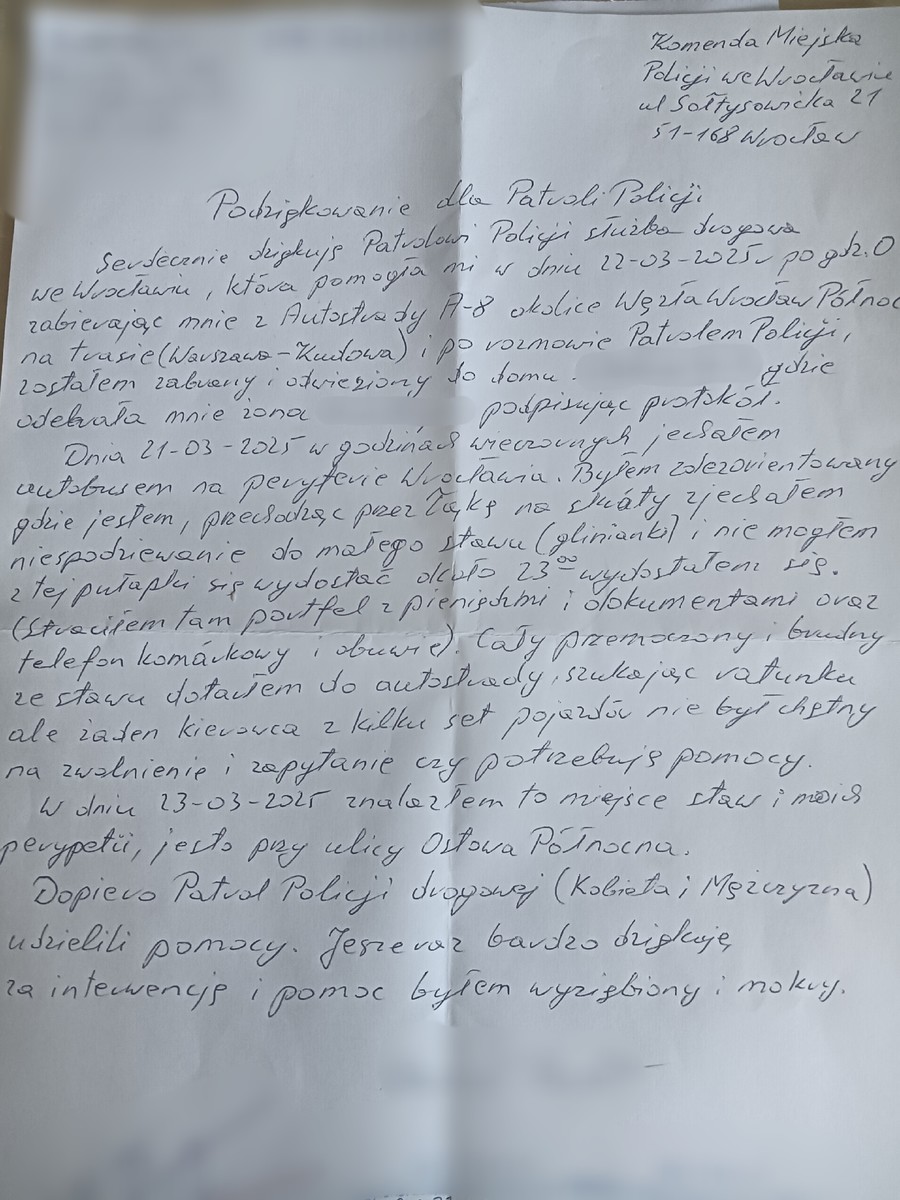 Komenda Miejska
Policji we Wrocławiu
ul Sołtysowicka 21
51-168 Wrocław
Podziękowanie dla Patroli Policji
Serdecznie dziękuję Patrolowi Policji służba drogowa
we Wrocławiu, która pomogła mi w dniu 22-03-2025r po gdz. 0
zabierając mnie z Autostrady A-8 okolice Węzła Wrocław Północ
na trasie (Warszawa-Kudowa) i po rozmowie Patrolem Policji,
zostałem zabrany i odwieziony do domu. gdzie
odebrała mnie żona podpisując protokół.
Dnia 21-03-2025 w godzinach wieczornych jechałem
autobusem na peryferie Wrocławia. Byłem zdezorientowany
gdzie jestem, przechodząc przez łąkę na skróty zjechałem
niespodziewanie do małego stawu (glinianki) i nie mogłem
z tej pułapki się wydostać około 23⁰⁰ wydostałem się.
(straciłem tam portfel z pieniędzmi i dokumentami oraz
telefon komórkowy i obuwie). Cały przemoczony i brudny
ze stawu dotarłem do autostrady, szukając ratunku
ale żaden kierowca z kilku set pojazdów nie był chętny
na zwolnienie i zapytanie czy potrzebuję pomocy.
W dniu 23-03-2025 znalazłem to miejsce staw i moich
perypetii, jest o przy ulicy Ostowa Północna.
Dopiero Patrol Policji drogowej (Kobieta i Mężczyzna)
udzielili pomocy. Jeszcze raz bardzo dziękuję,
za interwencję i pomoc byłem wyziębiony i mokry.